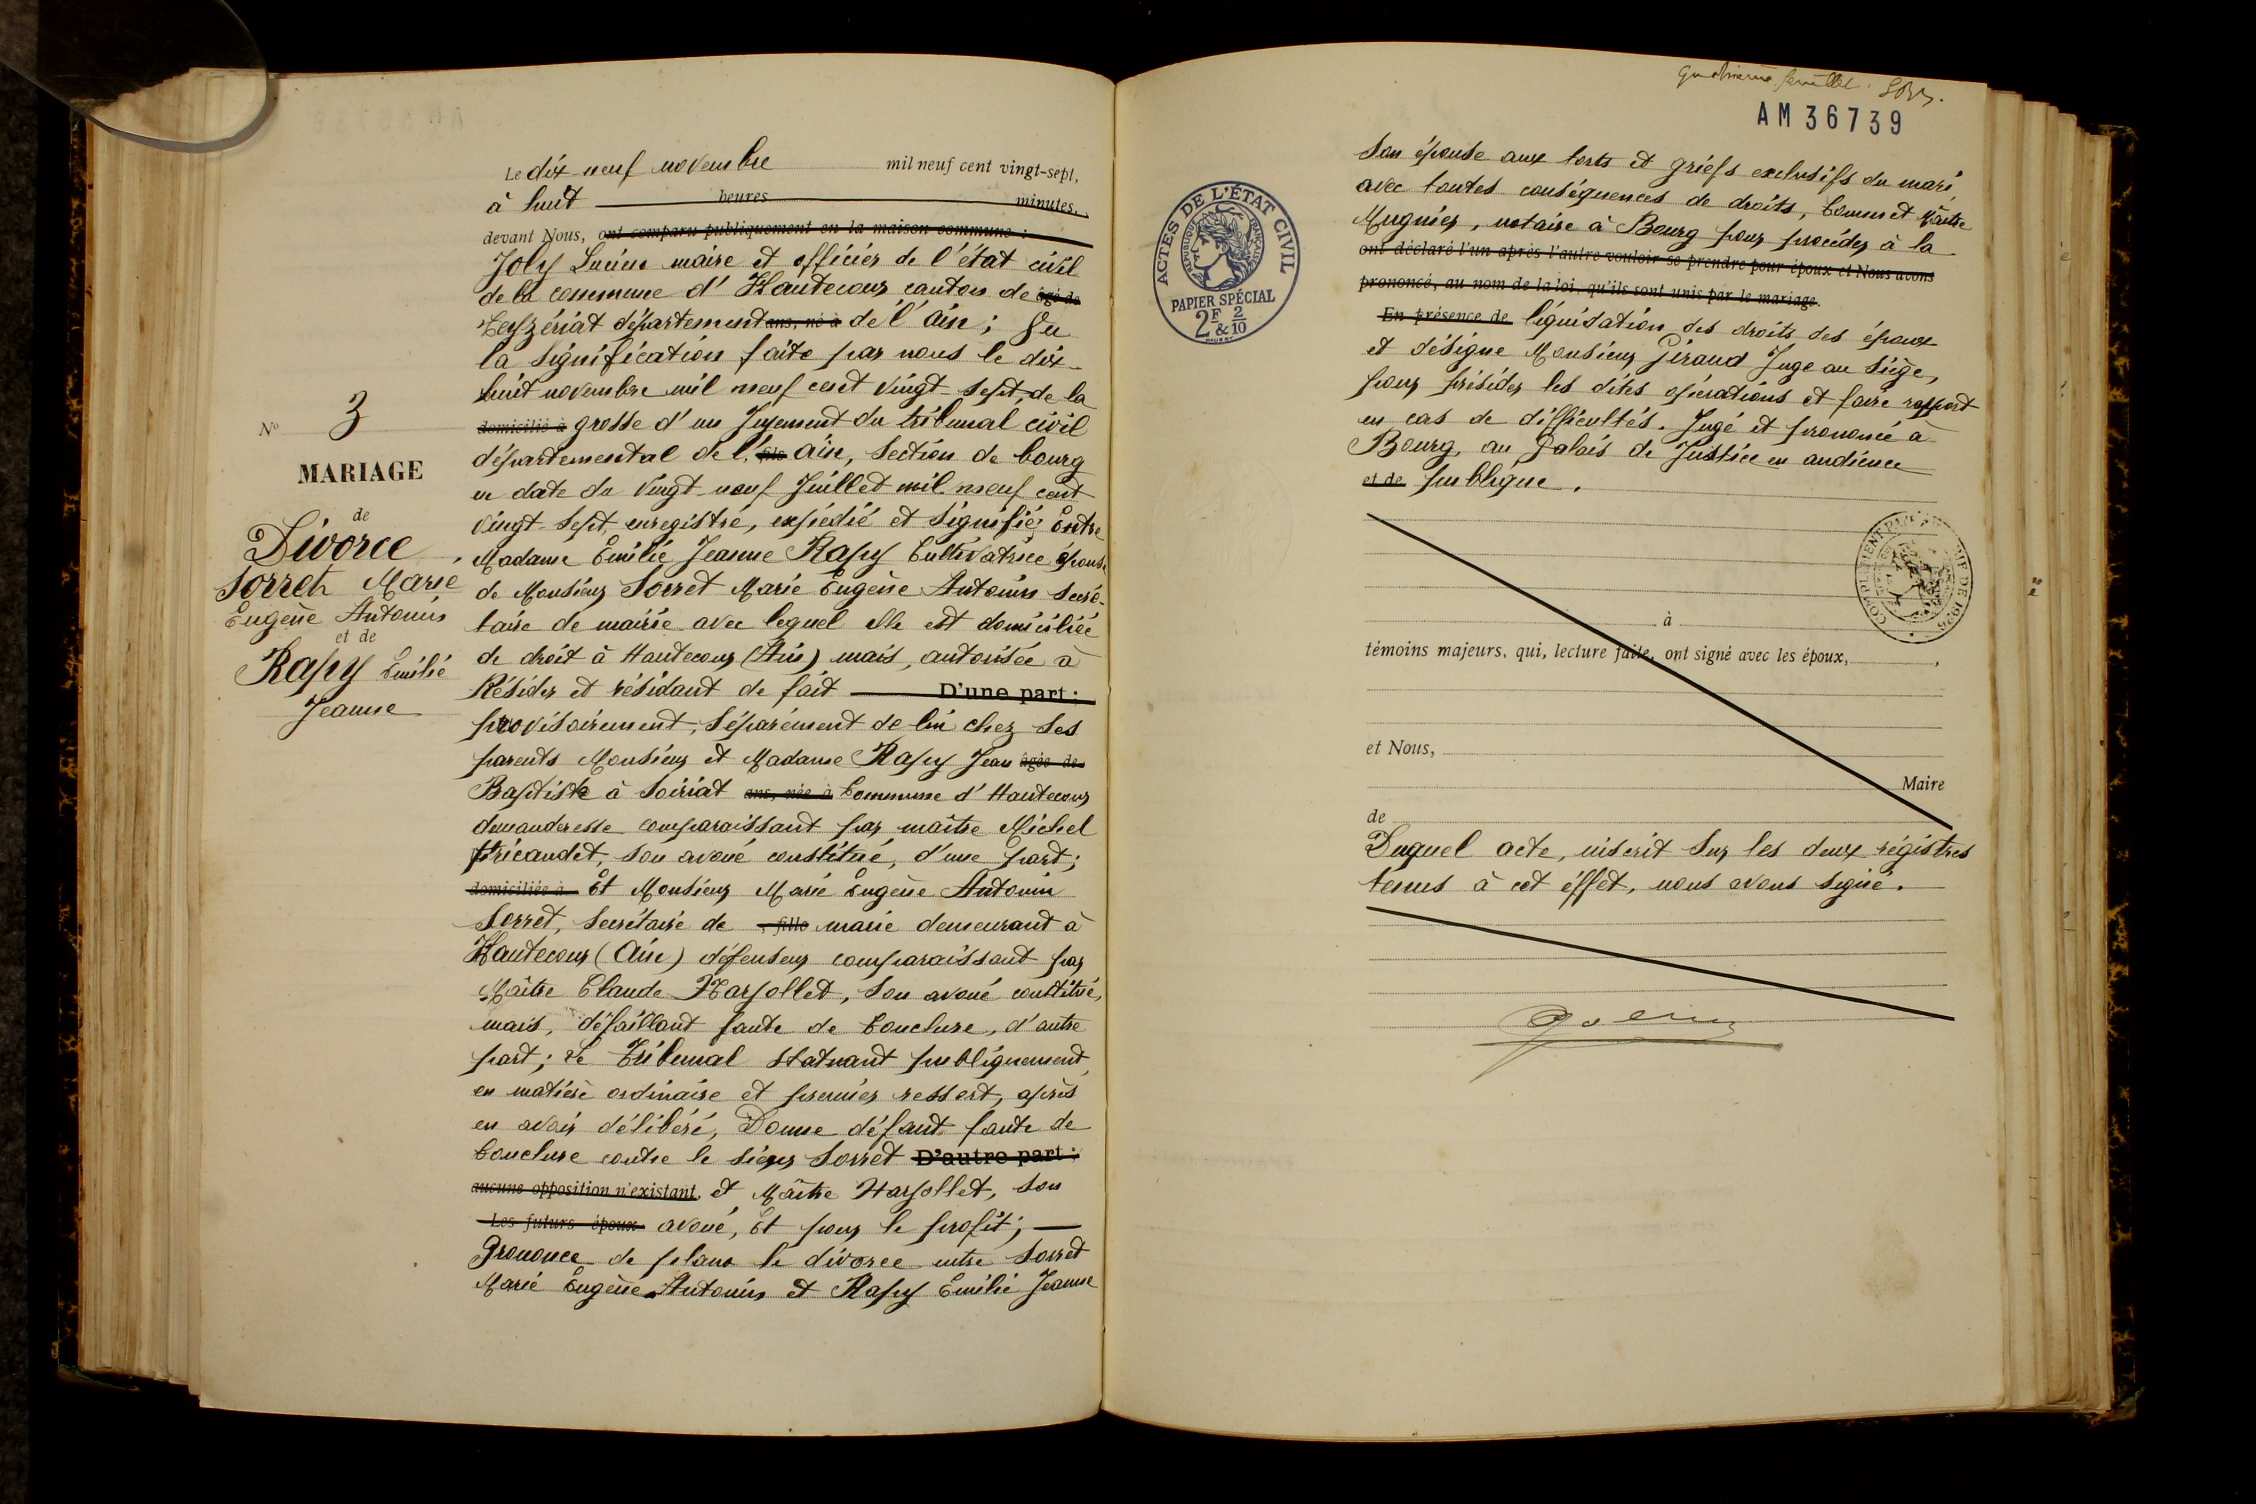 Le dix-neuf novembre mil neuf cent vingt-sept,
à huit heures minutes,
devant Nous, ont comparu publiquement en la maison commune :
Joly Lucien maire et officier de l'état civil
de la commune d'Hautecour canton de âgé de
Ceyzériat département ans, né à de l'Ain ; Vu
la signification faite par nous le dix-
huit novembre mil neuf cent vingt-sept, de la
domicilié à grosse d'un Jugement du tribunal civil
départemental de l' fils Ain, Section de bourg
en date du vingt neuf Juillet mil neuf cent
vingt-sept enregistré, expédié et signifié ; Entre
N° 3
MARIAGE
de
Divorce
Sorret Marie
Eugène Antonin
et de
Rapy Emilie
Jeanne
Madame Emilie Jeanne Rapy Cultivatrice épouse
de Monsieur Sorret Marie Eugène Antonin secré-
taire de mairie avec lequel elle est domiciliée
de droit à Hautecour (Ain) mais, autorisée à
Résider et résidant de fait D'une part :
provisoirement, séparément de lui chez ses
parents Monsieur et Madame Rapy Jean âgée de
Baptiste à Soiriat ans, née à Commune d'Hautecour
demanderesse comparaissant par maître Michel
son avoué constitué, d'une part ;
domiciliée à Et Monsieur Marie Eugène Antonin
Sorret, Secrétaire de , fille mairie demeurant à
Hautecour (Ain) défenseur comparaissant par
Maître Claude son avoué constitué,
mais, défaillant faute de Conclure, d'autre
part ; Le Tribunal statuant publiquement,
en matière ordinaire et premier ressort, après
en avoir délibéré, Donne défaut faute de
Conclure contre le sieur Sorret D'autre part :
aucune opposition n'existant, et Maître son
Les futurs époux avoué, Et pour le profit ;
Prononce de plano le divorce entre Sorret
Marie Eugène Antonin et Rapy Emilie Jeanne
feuillet
AM 36739
ACTES DE L'ÉTAT CIVIL
RÉPUBLIQUE FRANÇAISE
PAPIER SPÉCIAL
2F & 2/10
son épouse aux torts et griefs exclusifs du mari
avec toutes conséquences de droits, Commet Maître
Mugnier, notaire à Bourg pour procéder à la
ont déclaré l'un après l'autre vouloir se prendre pour époux et Nous avons
prononcé, au nom de la loi, qu'ils sont unis par le mariage.
En présence de liquidation des droits des époux
et désigne Monsieur Giraud Juge au Siège,
pour présider les dites opérations et faire rapport
en cas de difficultés. Jugé et prononcé à
Bourg, au Palais de Justice en audience
et de publique.
à
témoins majeurs, qui, lecture faite, ont signé avec les époux,
et Nous,
Maire
de
Duquel acte, inscrit sur les deux régistres
tenus à cet éffet, nous avons signé.